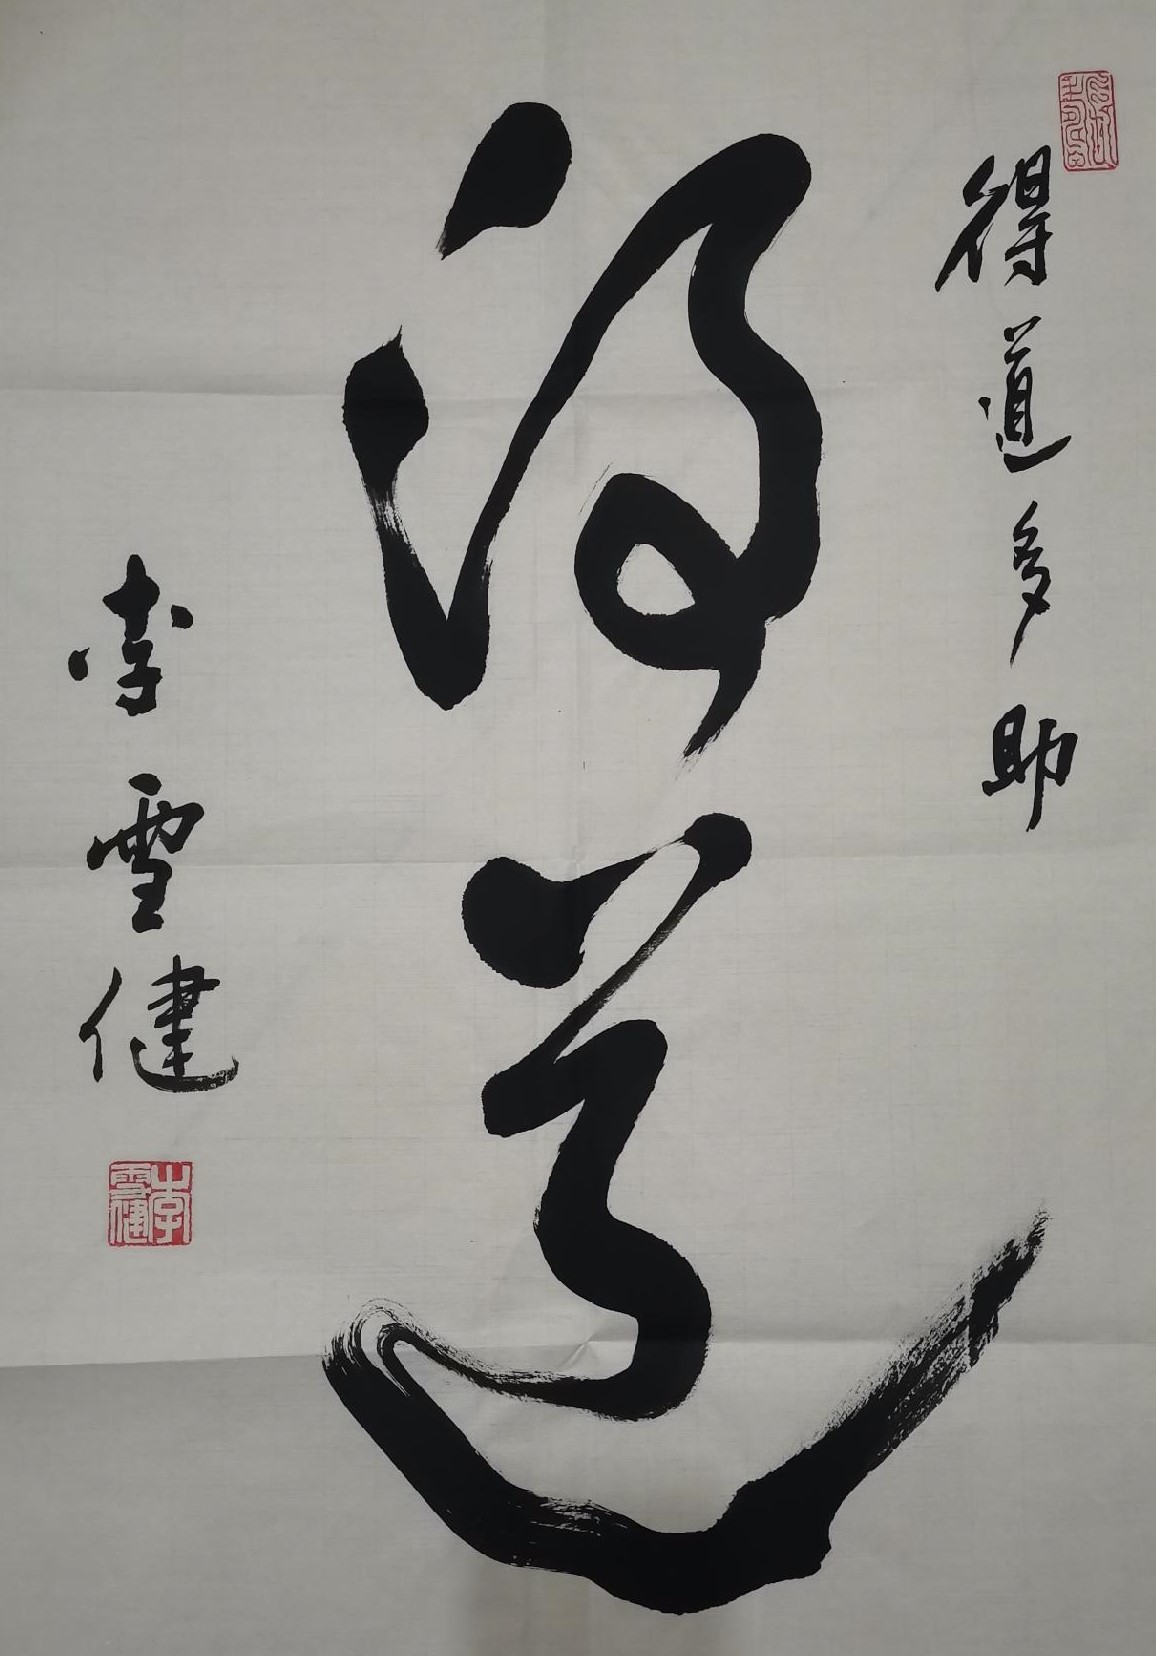 得道多助
得道
李雪健
李雪健